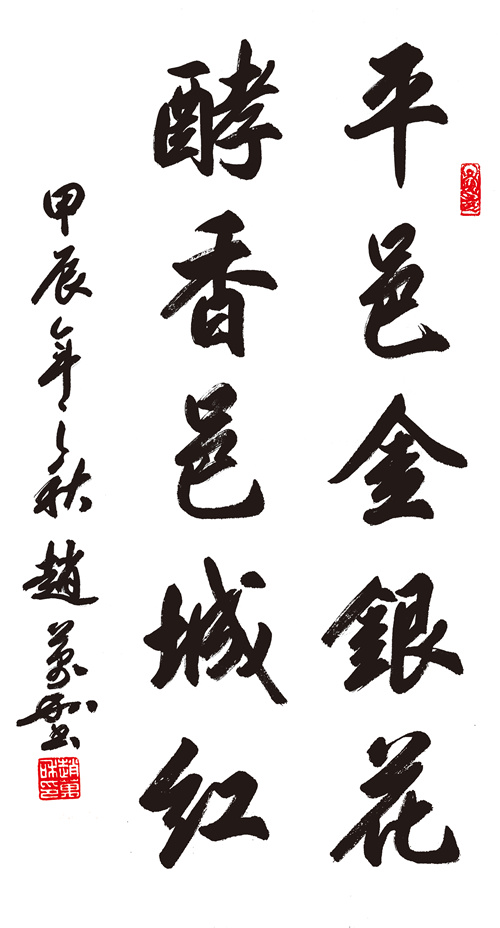 平邑金銀花
酵香邑城红
甲辰年之秋趙萬和书